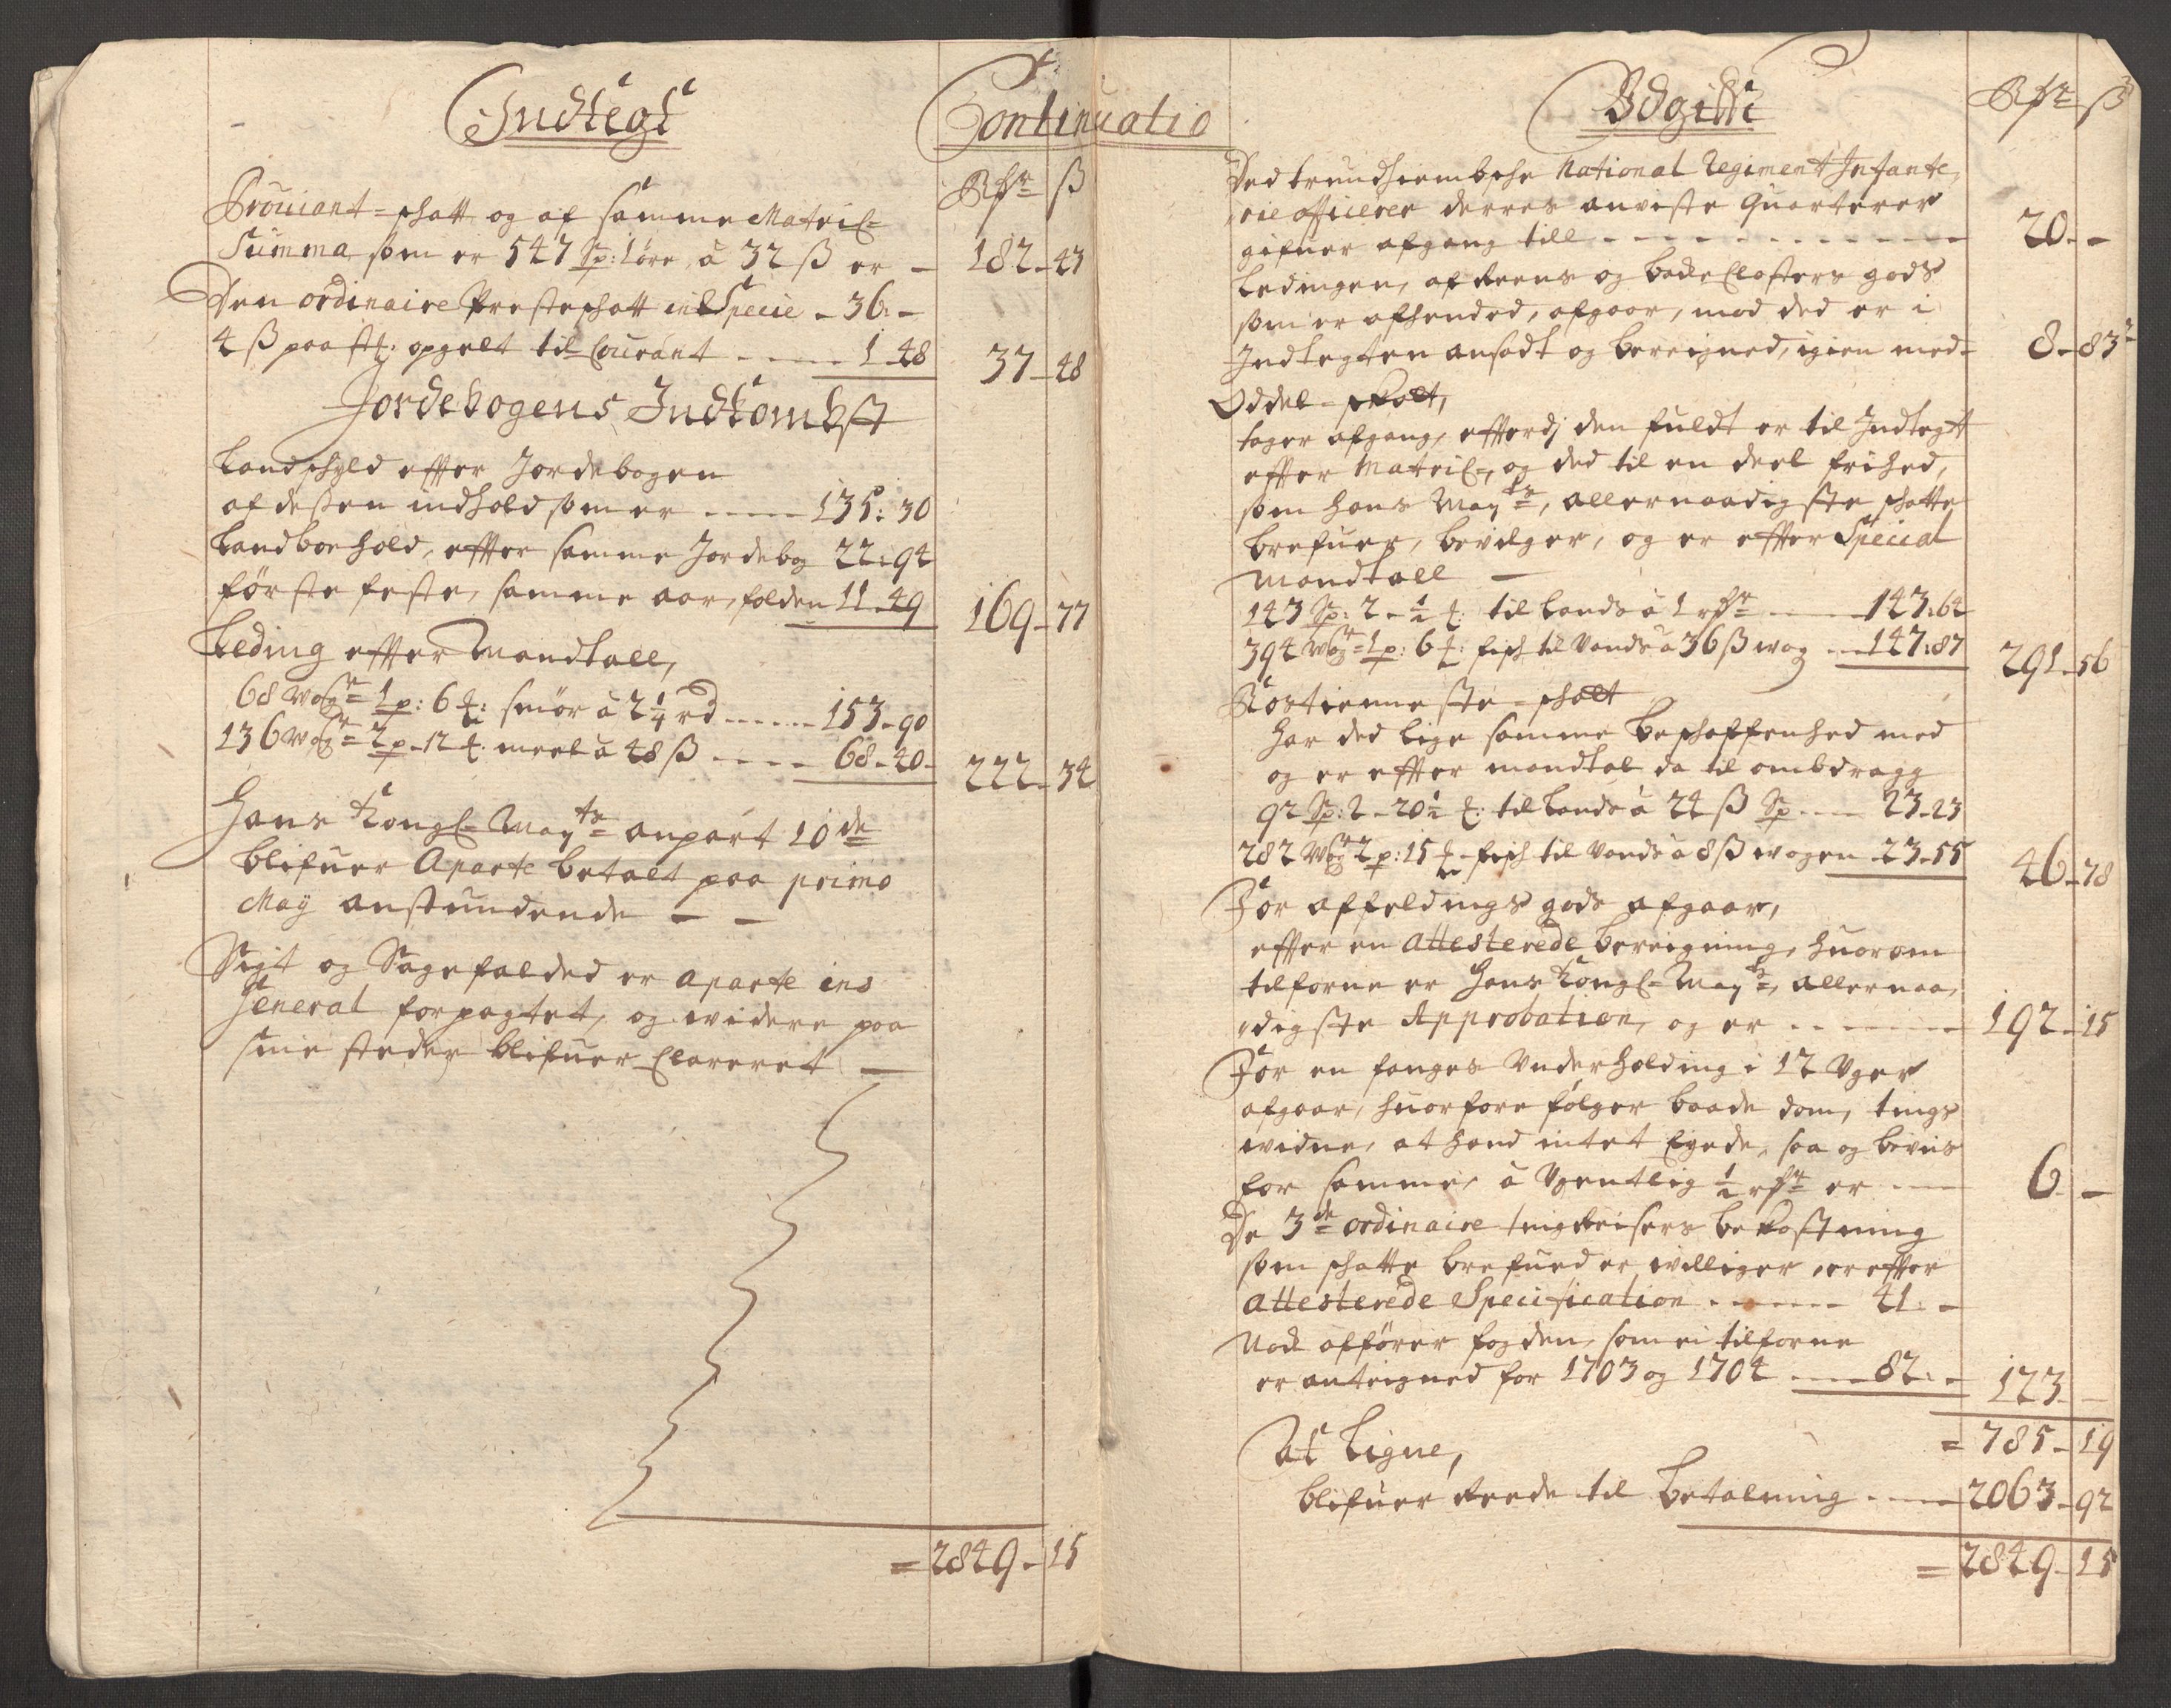 Indtegt
Continuatio
Rdr ß
Prouiant-schatt og af samme Matricl=
Summa som er 547 Sp: 1 öre, à 32 ß er — 182 - 43
Den ordinaire Presteschatt inl Specie - 36: -
4 ß paa st: opgelt til Courant ---- 1 48
37 - 48
Jordebogens Indkombst
Landschyld effter Jordebogen
af desßen indhold som er ---- 135: 30
Landboehold, effter samme Jordebog 22: 94
förste feste, samme aar, falden 11 - 49
169 - 77
Leding effter Mandtall,
68 wogr= 1 p: 6 ℔: smör à 2 1/4 rd ---- 153 - 90
136 wogr= 2 p - 12 ℔. meel à 48 ß ---- 68 - 40 -
222 - 34
Hans Kongl= Mayts anpart 10de
blifuer Aparte betalt paa primo
Maÿ anstundende — —
Sigt og Sagefalded er aparte ins
General forpagtet, og widere paa
sine steder blifuer Clareret —
= 2849 - 15
Udgifft
Rdr ß
Ded trundhiembsche National Regiment Infante,
rie officerer derres anviste Quarterer
gifuer afgang till ---- 20 - -
Ledingen, af Reens og bache Closters gods
som er afhended, afgaar, mod ded er i
Indtegten ansadt og bereigned, igien med- 8 - 83 1/2
Oddel-skatt,
tager afgang, efterdj den fuldt er til Indtegt
effter Matricl=, og ded til en deel frihed,
som hans Mayts, allernaadigste schatte
brefuer, bevilger, og er effter Special
Mandtall —
143 Sp: 2 - 1/2 ℔: til Lands à 1 rdr ---- 143: 64
394 wogr= 1 p: 6 ℔: fisch til Vands à 36 ß wog --- 147: 87
291 - 56
Rostienneste-schatt
har ded lige samme beschaffenhed med
og er effter mandtal da til ombdragg
92 Sp: 2 - 20 1/2 ℔: til Lands à 24 ß Sp ---- 23 - 23
282 Wogr 2 p: 15 ℔ - fisch til Vands à 8 ß wogen 23 - 55
46 - 78
For affeldings gods afgaar,
effter en attesterede bereigning, huorom
tilforne er Hans Kongl= Mayts, allernaa,
digste Approbation, og er ------ 192 - 15
For en fanges Underholding i 12 Uger
afgaar, huorfore følger baade dom, tings
widne, at hand intet Eyede, saa og beviis
for samme, à Ugentlig 1/2 rdr er ---- 6 - -
De 3de ordinaire tingreisers bekostning
som schatte brefued er williger, er effter
attesterede Specification ------ 41: -
Nock afförer fogden, som ei tilforne
er antrigned for 1703 og 1704 ---- 82: -
123 -
= 785 - 19
At Ligne,
blifuer Reede til betalning ---- 2063 - 92
= 2849 - 15